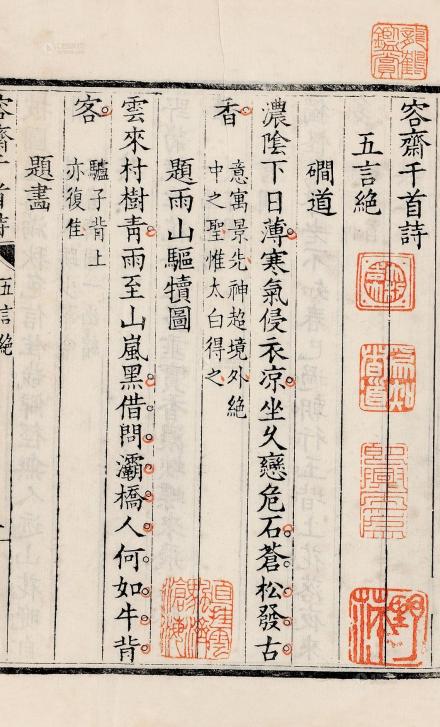 容齋千首詩
五言絶
磵道
濃陰下日薄寒氣侵衣凉坐久戀危石蒼松發古
香
意寓景先神超境外絶
中之聖惟太白得之
題雨山驅犢圖
雲來村樹靑雨至山嵐黑借問灞橋人何如牛背
客
驢子背上
亦復佳
題畫
容齋千首詩
五言絶